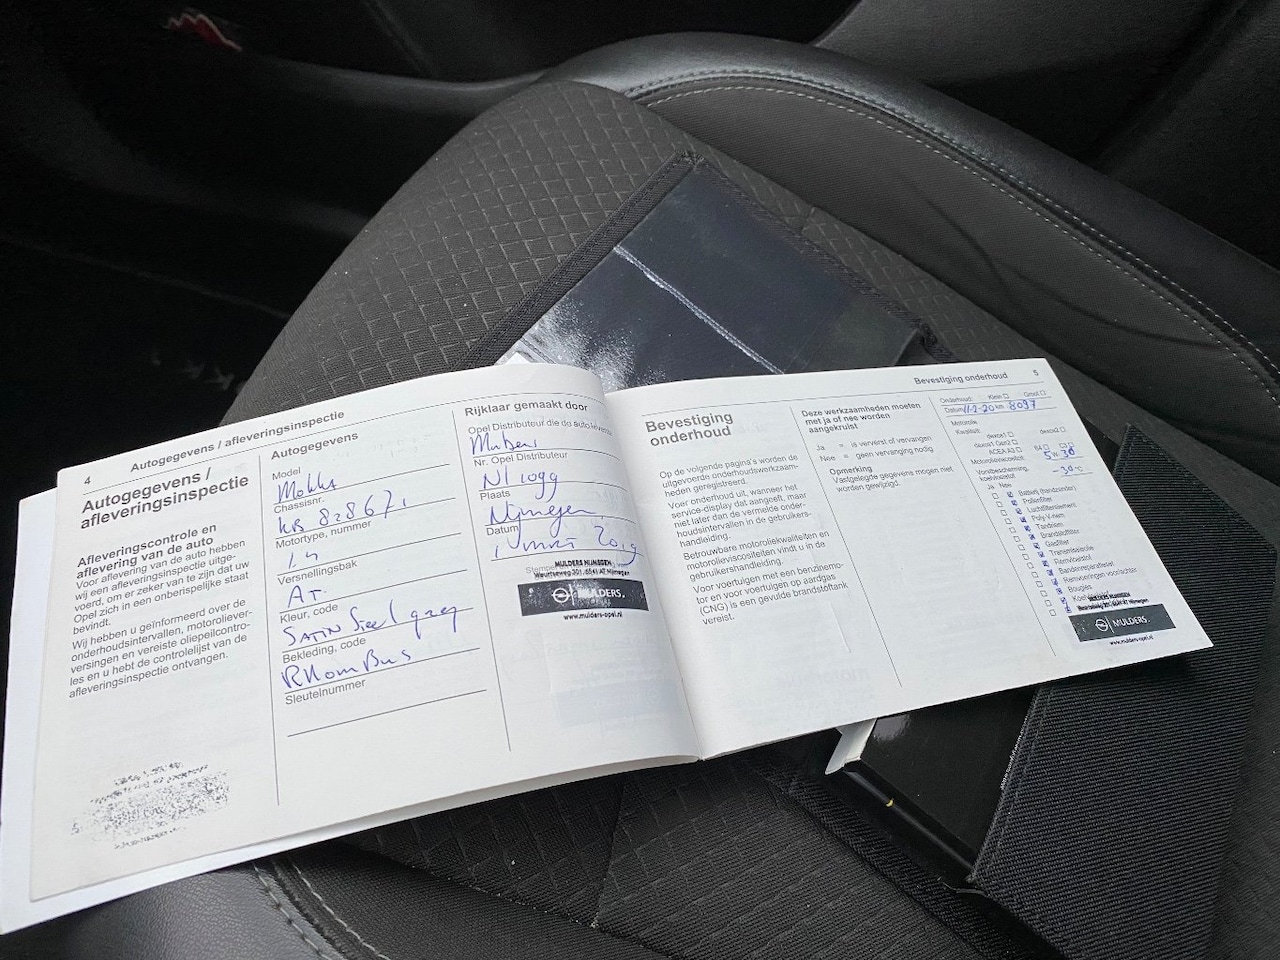 4
Autogegevens / afleveringsinspectie
Autogegevens /
afleveringsinspectie
Afleveringscontrole en
aflevering van de auto
Voor aflevering van de auto hebben
wij een afleveringsinspectie uitge-
voerd, om er zeker van te zijn dat uw
Opel zich in een onberispelijke staat
bevindt.
Wij hebben u geïnformeerd over de
onderhoudsintervallen, motoroliever-
versingen en vereiste oliepeilcontro-
les en u hebt de controlelijst van de
afleveringsinspectie ontvangen.
Autogegevens
Model
Mokka
Chassisnr.
KB 828671
Motortype, nummer
1.4
Versnellingsbak
AT.
Kleur, code
Satin Steel grey
Bekleding, code
RHomBus
Sleutelnummer
Rijklaar gemaakt door
Opel Distributeur die de auto levert
Mulders
Nr. Opel Distributeur
Nl 1099
Plaats
Nijmegen
Datum
1 mrt 2019
MULDERS NIJMEGEN
Weurtseweg 301, 6541 AT Nijmegen
MULDERS.
www.mulders-opel.nl
Bevestiging onderhoud
5
Bevestiging
onderhoud
Op de volgende pagina's worden de
uitgevoerde onderhoudswerkzaam-
heden geregistreerd.
Voer onderhoud uit, wanneer het
service-display dat aangeeft, maar
niet later dan de vermelde onder-
houdsintervallen in de gebruikers-
handleiding.
Betrouwbare motoroliekwaliteiten en
motorolieviscositeiten vindt u in de
gebruikershandleiding.
Voor voertuigen met een benzinemo-
tor en voor voertuigen op aardgas
(CNG) is een gevulde brandstoftank
vereist.
Deze werkzaamheden moeten
met ja of nee worden
aangekruist
Ja = is ververst of vervangen
Nee = geen vervanging nodig
Opmerking
Vastgelegde gegevens mogen niet
worden gewijzigd.
Onderhoud: Klein Groot
Datum 11-2-20 km 8097
Motorolie
Kwaliteit:
dexos1 dexos2
dexos1 Gen2
ACEA A3
Motorolieviscositeit: 5 W 30
Vorstbescherming,
koelvloeistof -30°C
Ja Nee
Batterij (handzender)
Pollenfilter
Luchtfilterelement
Poly V-riem
Tandriem
Brandstoffilter
Gasfilter
Transmissieolie
Remvloeistof
Bandenreparatieset
Bougies
MULDERS NIJMEGEN
Weurtseweg 301, 6541 AT Nijmegen
MULDERS.
www.mulders-opel.nl